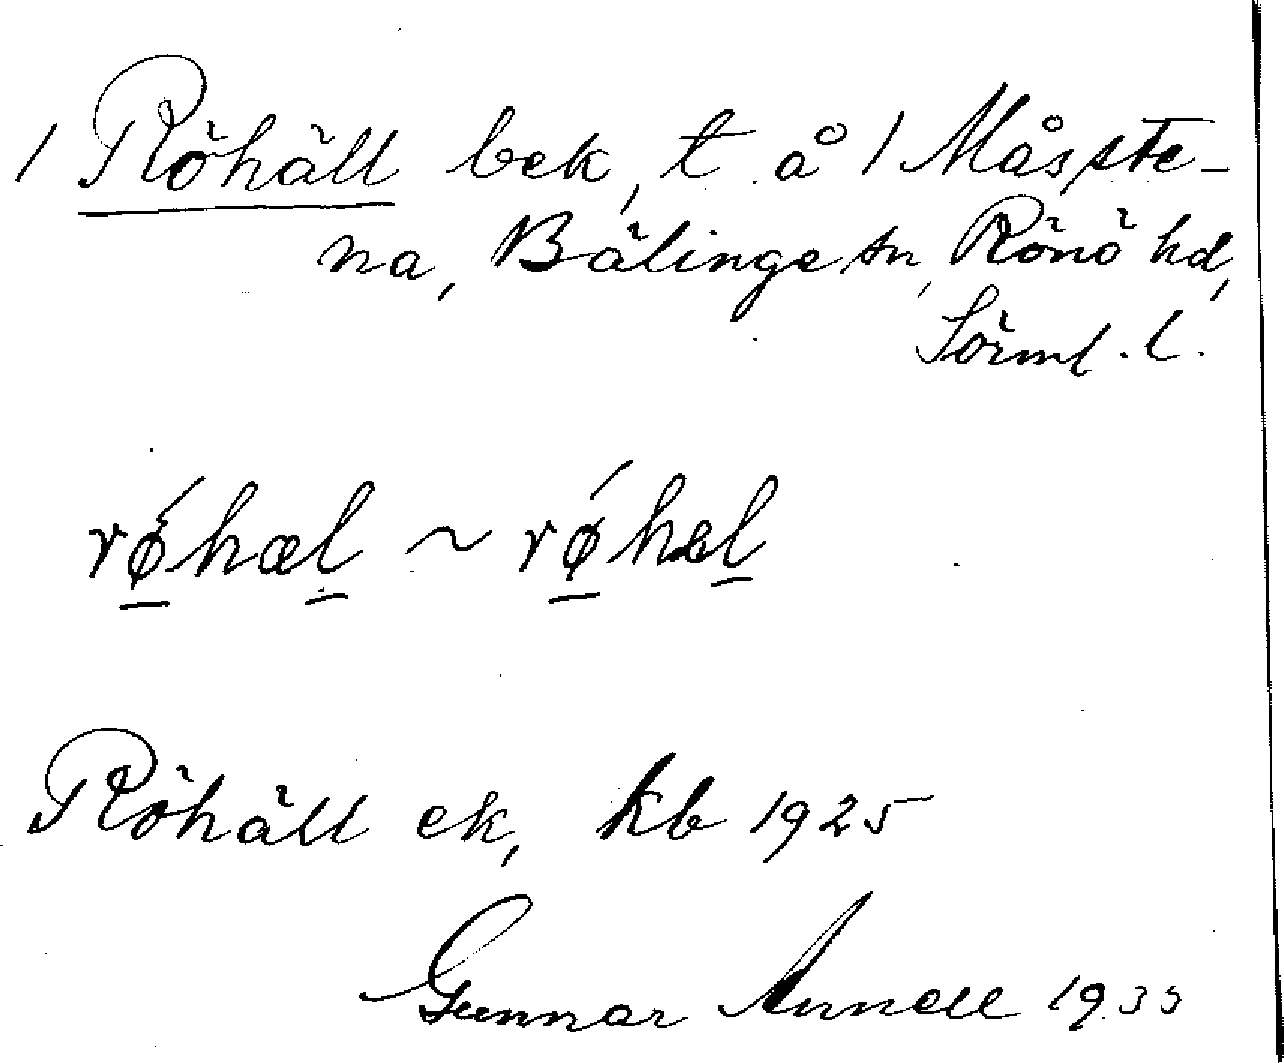 / Röhäll bek, t å / Måsste-
na, Bälinge sn, Rönö hd,
Sörml. l.
rǿhæl ~ rǿhəl
Röhäll ek, kb 1925
Gunnar Annell 1935